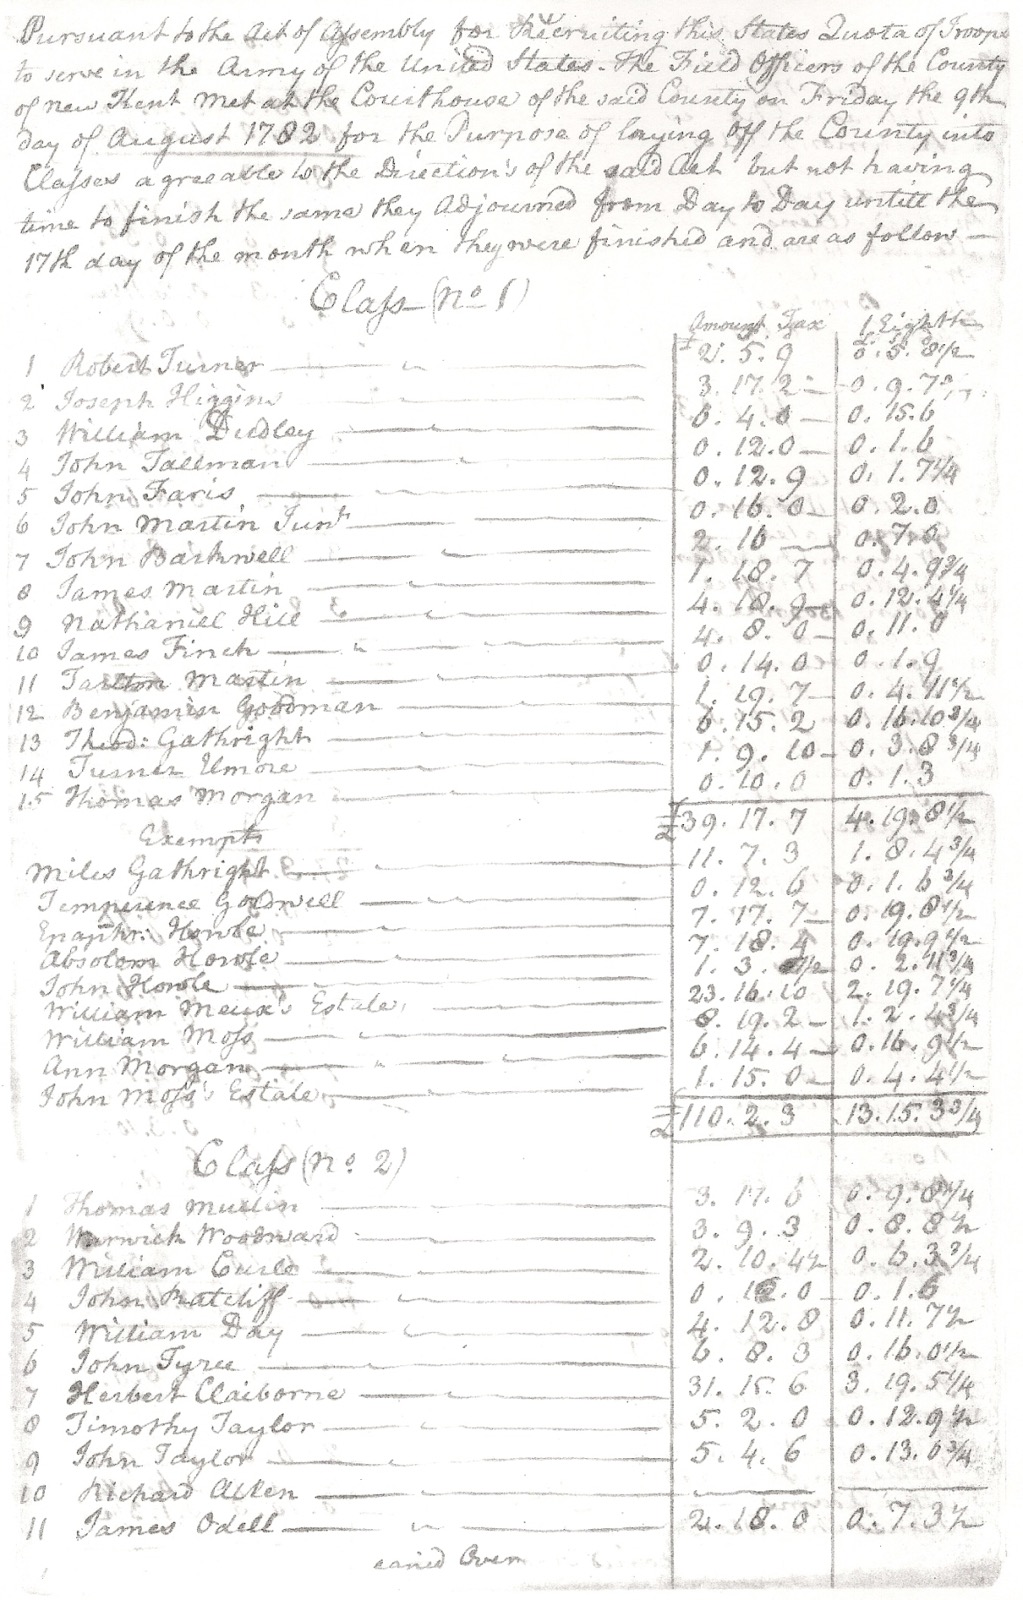 Pursuant to the Act of Assembly for Recruiting this States Quota of Troops
to serve in the Army of the United States - the Field Officers of the County
of New Kent Met at the Courthouse of the said County on Friday the 9th
day of August 1782 for the Purpose of laying off the County into
Classes agreeable to the Direction's of the said Act but not having
time to finish the same they Adjourned from Day to Day untill the
17th day of the month when they were finished and are as follow —
Class (No 1)
Amount Tax 1 Eighth
1 Robert Turner 2. 5. 9 0. 5. 8 1/2
2 Joseph Higgins 3. 17. 2 0. 9. 7
3 William Dudley 6. 4. 0 0. 15. 6
4 John Tallman 0. 12. 0 0. 1. 6
5 John Faris 0. 12. 9 0. 1. 7 1/4
6 John Martin Junr 0. 16. 0 0. 2. 0
7 John Barkwell 2. 16 0. 7. 0
8 James Martin 1. 18. 7 0. 4. 9 3/4
9 Nathaniel Hill 4. 18. 9 0. 12. 4 1/4
10 James Finch 4. 8. 0 0. 11. 0
11 Tarlton Martin 0. 14. 0 0. 1. 9
12 Benjamin Goodman 1. 19. 7 0. 4. 11 1/2
13 Theod: Gathright 6. 15. 2 0. 16. 10 3/4
14 Turner Umore 1. 9. 10 0. 3. 8 3/4
15 Thomas Morgan 0. 10. 0 0. 1. 3
£39. 17. 7 4. 19. 8 1/2
Exempts
Miles Gathright 11. 7. 3 1. 8. 4 3/4
Temperence Goldwell 0. 12. 6 0. 1. 6 3/4
Epaphr: Howle 7. 17. 7 0. 19. 8 1/2
Absolom Howle 7. 18. 4 0. 19. 9 1/2
John Howle 1. 3. 0. 2. 11 3/4
William Meux's Estate 23. 16. 10 2. 19. 7 1/4
William Moss 8. 19. 2 1. 2. 4 3/4
Ann Morgan 6. 14. 4 0. 16. 9 1/2
John Moss's Estate 1. 15. 0 0. 4. 4 1/2
£110. 2. 3 13. 15. 3 3/4
Class (No. 2)
1 Thomas Mullin 3. 17. 6 0. 9. 8 1/4
2 Warwick Woodward 3. 9. 3 0. 8. 8 1/2
3 William Curle 2. 10. 4 1/2 0. 6. 3 3/4
4 John Ratcliff 0. 12. 0 0. 1. 6
5 William Day 4. 12. 8 0. 11. 7 1/2
6 John Tyree 6. 8. 3 0. 16. 0 1/2
7 Herbert Claiborne 31. 15. 6 3. 19. 5 1/4
8 Timothy Taylor 5. 2. 0 0. 12. 9 1/2
9 John Taylor 5. 4. 6 0. 13. 0 3/4
10 Richard Allen
11 James Odell 2. 18. 0 0. 7. 3 1/2
caried Over